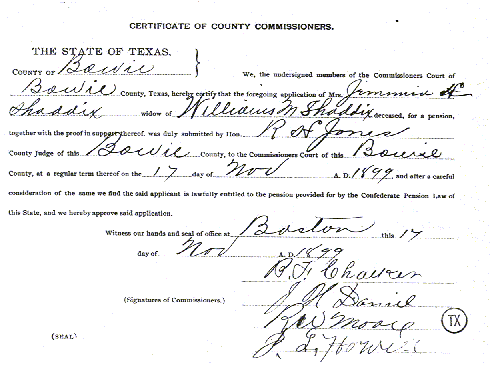 CERTIFICATE OF COUNTY COMMISSIONERS.
THE STATE OF TEXAS, }
COUNTY OF Bowie We, the undersigned members of the Commissioners Court of
Bowie County, Texas, hereby certify that the foregoing application of Mrs.
Shaddix widow of William M Shaddix deceased, for a pension,
together with the proof in support thereof, was duly submitted by Hon. R H Jones
County Judge of this Bowie County, to the Commissioners Court of this Bowie
County, at a regular term thereof on the 17 day of Nov A. D. 1899, and after a careful
consideration of the same we find the said applicant is lawfully entitled to the pension provided for by the Confederate Pension Law of
this State, and we hereby approve said application.
Witness our hands and seal of office at Boston this 17
day of Nov A. D. 1899
B. F. Chalker
J H Daniel
(Signatures of Commissioners.)
R W Moore
TX
J. L. Howell
(SEAL)